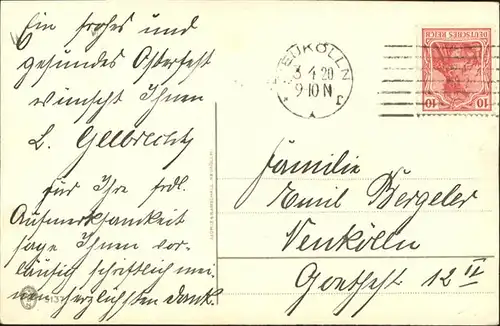 Ein frohes und
gesundes Osterfest
wünscht Ihnen
L. Gellbrecht
für Ihre frdl.
Aufmerksamkeit
sage Ihnen vor-
läufig schriftlich mei-
nen herzlichsten Dank.
NEUKÖLLN
3 4 20
9-10 N
DEUTSCHES REICH
10 10
Familie
Emil Bergeler
Neukölln
12 II